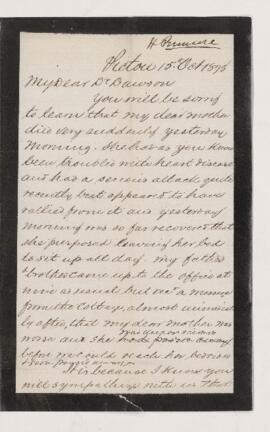 H Primrose
Pictou 15 Oct 1896
My Dear Dr Dawson
You will be sorry
to learn that my dear mother
died very suddenly yesterday
morning. She has as you know
been troubled with heart disease
and has a serious attack quite
recently but appeared to have
rallied from it and yesterday
morning was so far recovered that
she purposed leaving her bed
to set up all day. My father
& brother came up to the office at
nine as usual but recd a message
from the Cottage, almost immediately
after, that my dear mother was
worse and she had passed away
before we could reach her bedside
It is because I know you
will sympathize with us that